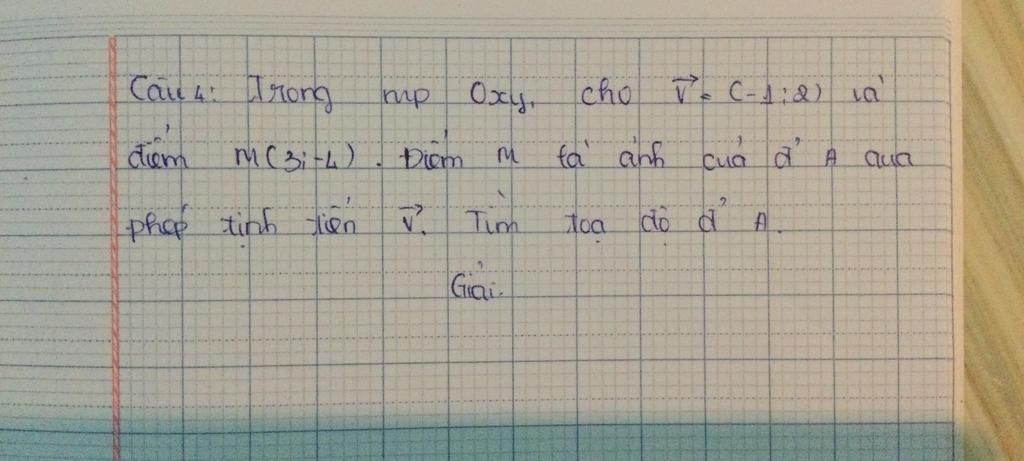 Câu 4: Trong mp Oxy, cho v⃗ = (-1; 2) và
điểm M(3; -4). Điểm M là ảnh của đ' A qua
phép tịnh tiến v⃗. Tìm toạ độ đ' A.
Giải.